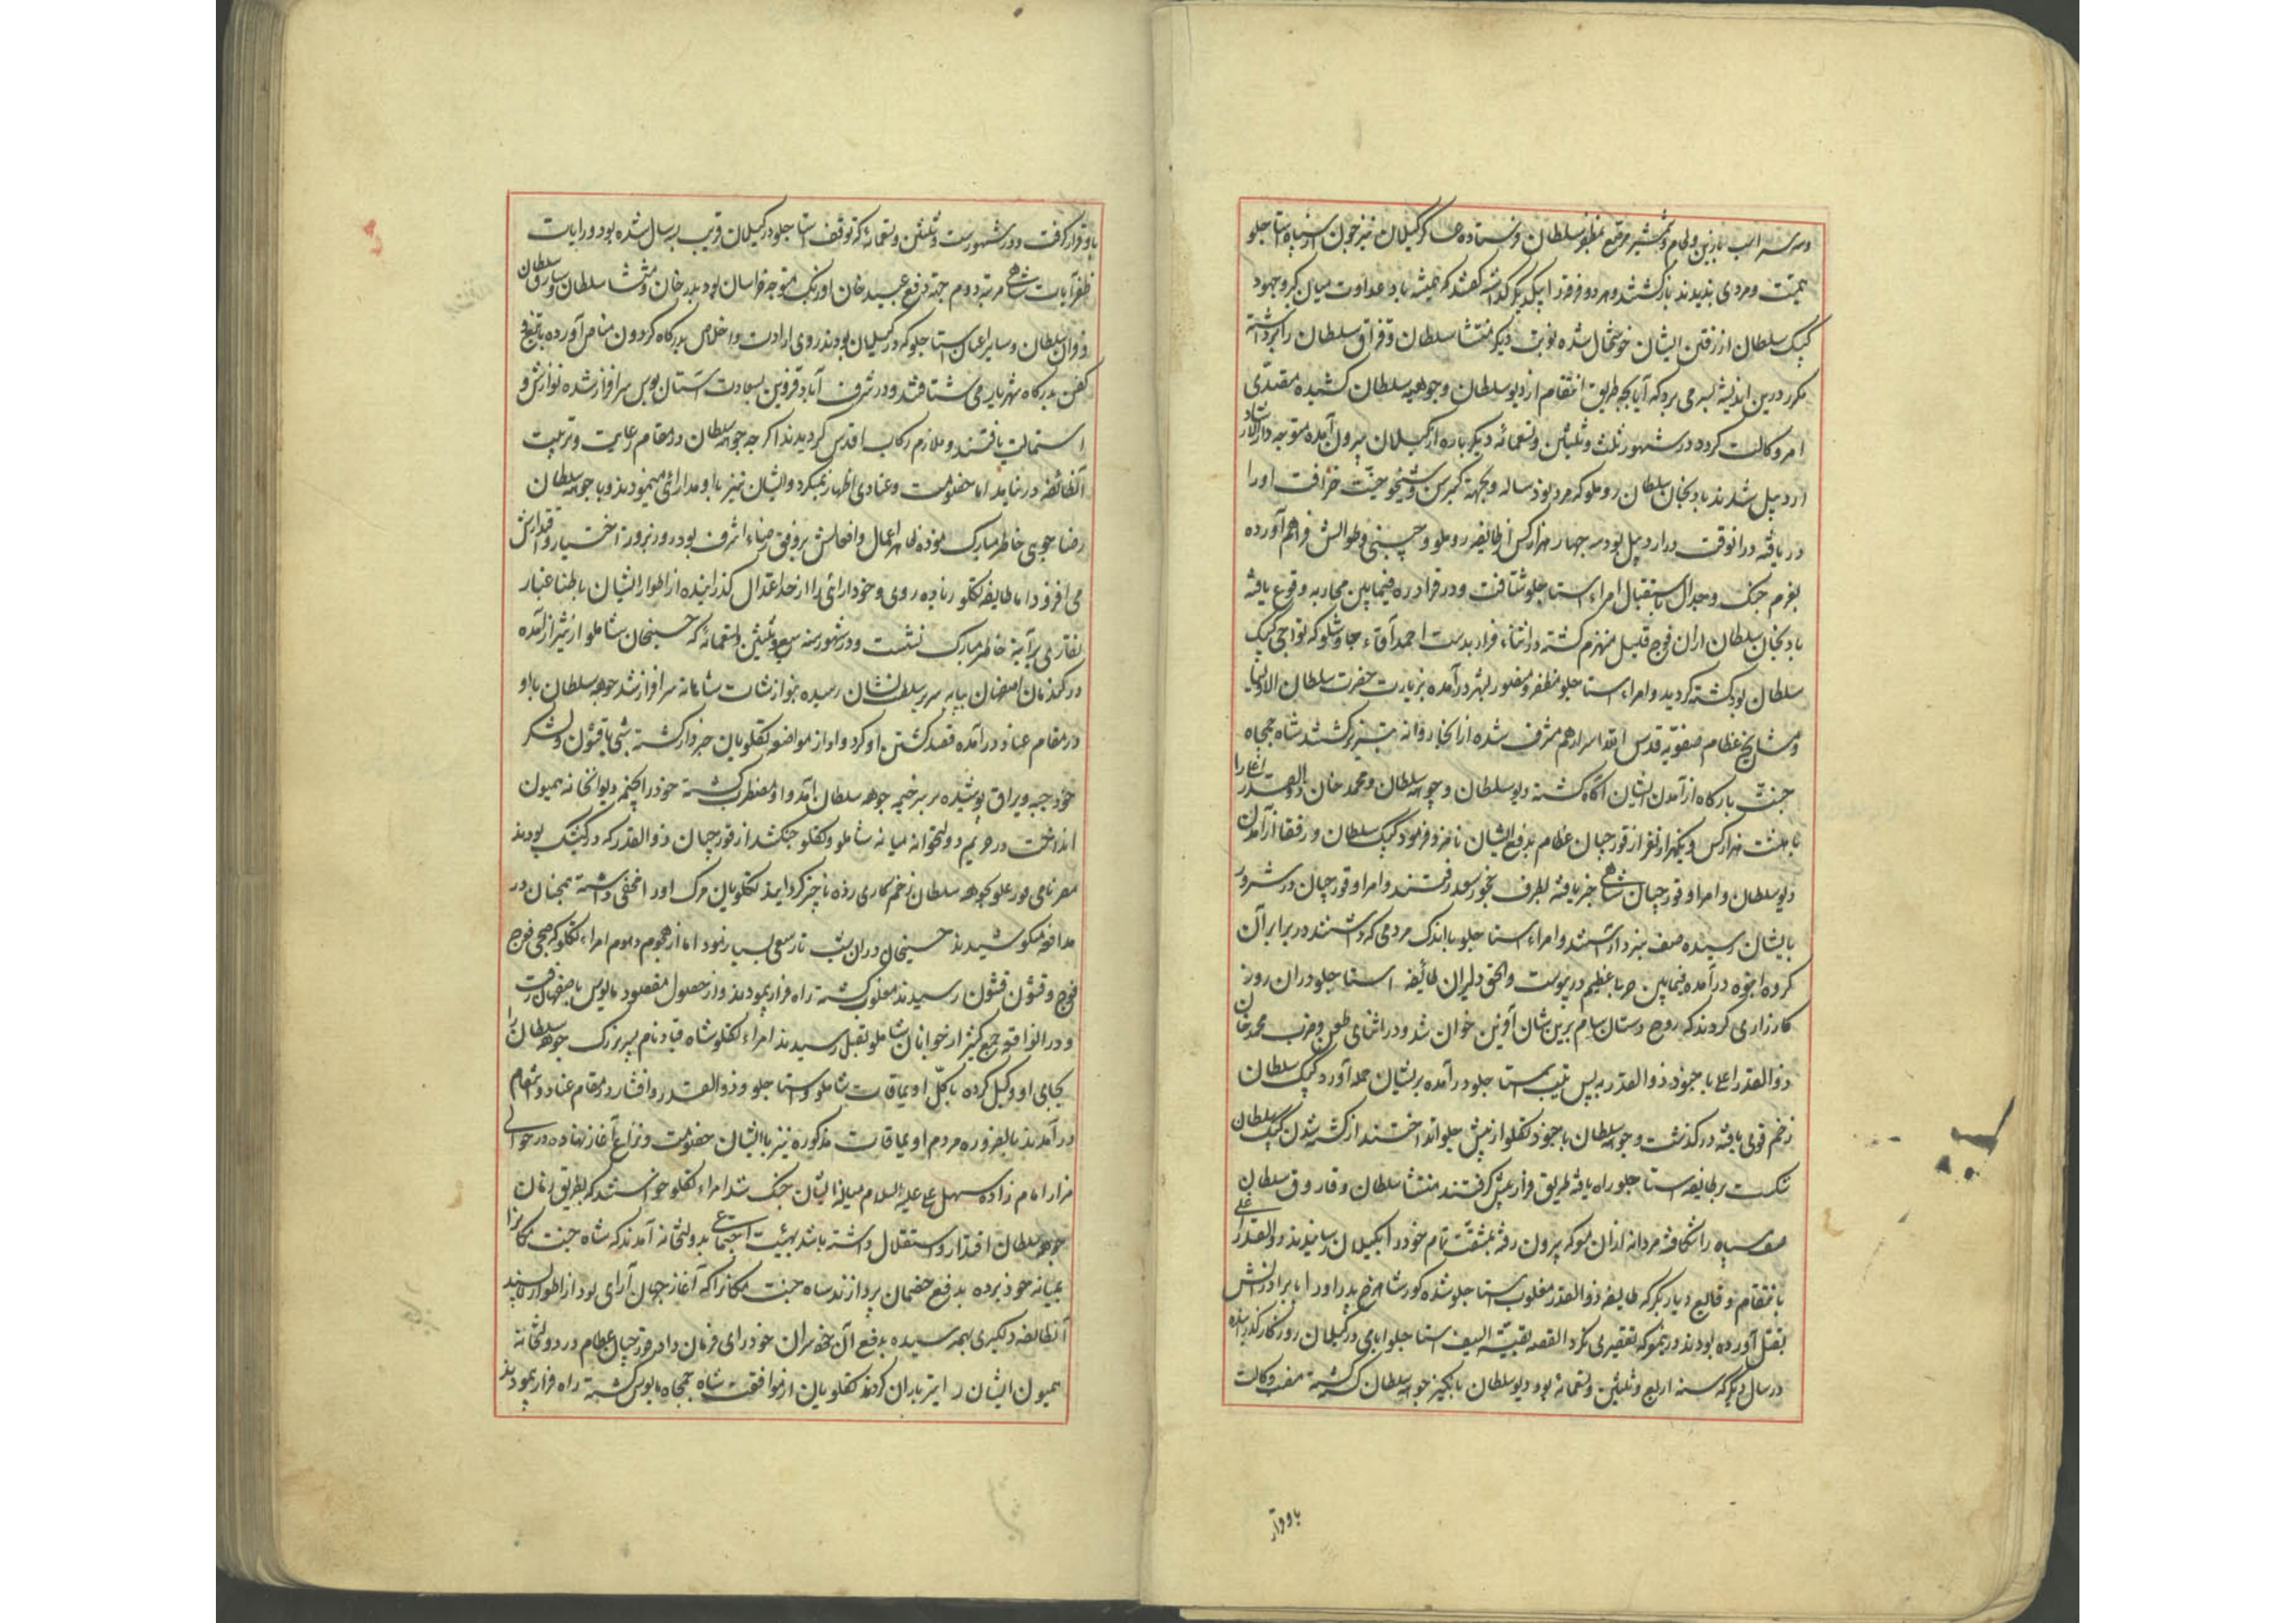 و سه سر اسب با زین و لجام و شمشیر مرصع بمظفر سلطان فرستاده عساکر گیلان نیز چون از سپاه استاجلو
حمیت و مردی ندیدند بازگشتند و هر دو فرقه از یکدیگر گذشته گفتند که همیشه باد عداوت میان گروه جهود
کپک سلطان از رفتن ایشان خوشحال شده نوبت دیگر منتشا سلطان و قزاق سلطان را برداشته
مکرر درین اندیشه بسر می برد که آیا بچه طریق انتقام از دیو سلطان و جوهه سلطان کشیده متصدی
امر وکالت گردد در شهور ثلث و ثلثین و تسعمائه دیگر باره از گیلان بیرون آمده متوجه دار الارشاد
اردبیل شدند بادنجان سلطان روملو که مرد نود ساله و بجهة کبر سن و شیخوخیت خرافت او را
دریافته در آنوقت در اردبیل بود سه چهار هزار کس از طایفه روملو و چپنی و طوالش فراهم آورده
بعزم جنگ و جدال باستقبال امراء استاجلو شتافت و در قرادره فیمابین محاربه وقوع یافته
بادنجان سلطان از آن فوج قلیل منهزم گشته در اثناء فرار بدست احمد آقاء چاوشلو که تواجی کپک
سلطان بود کشته گردید و امراء استاجلو مظفر و منصور بشهر درآمده بزیارت حضرت سلطان الاولیاء
و مشایخ عظام صفویه قدس الله اسرارهم مشرف شده از آنجا روانه تبریز گشتند شاه جمجاه
جنت بارگاه از آمدن ایشان آگاه گشته دیو سلطان و جوهه سلطان و محمد خان ذو القدر اغلی را
با هشت هزار کس و یکهزار نفر از قورچیان عظام بدفع ایشان نامزد فرمود کپک سلطان و رفقا از آمدن
دیو سلطان و امرا و قورچیان شاهی خبر یافته بطرف نخجور سعد رفتند و امرا و قورچیان در شرور
بایشان رسیده صف نبرد آراستند و امراء استاجلو با اندک مردمی که داشتند در برابر آن
گروه انبوه درآمده فیمابین حربا عظیم در پیوست و الحق دلیران طائفه استاجلو در آن روز
کارزاری کردند که روح دستان سام برین شان آفرین خوان شد و در اثنای طعن و ضرب محمد خان
ذو القدر اغلی با جنود ذو القدر به پس تیپ استاجلو درآمده بریشان حمله آورد کپک سلطان
زخم قوی یافته درگذشت و جوهه سلطان با جنود تکلو از پیش جلو انداختند از کشته شدن کپک سلطان
شکست بر طایفه استاجلو راه یافته طریق فرار پیش گرفتند منتشا سلطان و قاروق سلطان
صف سپاه را شکافته مردانه از آن معرکه بیرون رفته بمشقت تمام خود را بگیلان رسانیدند ذو القدر اغلی
بانتقام وقایع دیار بکر که طایفه ذو القدر مغلوب استاجلو شده کور شاهرخ پدر او را با برادرانش
بقتل آورده بودند در معرکه تقصیری نکرد القصه بقیة السیف استاجلو ایامی در گیلان روزگار گذرانیده
در سال دیگر که سنه اربع و ثلثین و تسعمائه بود دیو سلطان بانگیز جوهه سلطان کشته گشته منصب وکالت
باو قرار
باو قرار گرفت و در شهور ست و ثلثین و تسعمائه که توقف استاجلو در گیلان قریب به سه سال شده بود و رایات
ظفر آیات شاهی مرتبه دوم جهة دفع عبید خان اوزبک متوجه خراسان بود بدر خان و منتشا سلطان و ساروق سلطان
و قزاق سلطان و سایر اعیان استاجلو که در گیلان بودند روی ارادت و اخلاص بدرگاه گردون مناص آورده با تیغ و
کفن بدرگاه شهریاری شتافتند و در شرف آباد قزوین بسعادت آستان بوس سرافراز شده نوازش و
استمالت یافتند و ملازم رکاب اقدس گردیدند اگر چه جوهه سلطان در مقام رعایت و تربیت
آنطائفه در نیامد اما خصومت و عنادی اظهار نمیکرد و ایشان نیز با او مدارائی مینمودند و با جوهه سلطان
رضا جویی خاطر مبارک نموده ظاهر اعمال و افعالش بر وفق رضاء اشرف بود روز بروز اختیار و اقتدارش
می افزود اما طایفه تکلو زیاده روی و خودارائی را از حد اعتدال گذرانیده از اطوار ایشان باطنا غبار
نقاری بر آینه خاطر مبارک نشست و در شهور سنه سبع و ثلثین و تسعمائه که حسینخان شاملو از شیراز آمده
در کندمان اصفهان بپایه سریر سلطنت نشان رسیده بنوازشات شاهانه سرافراز شد جوهه سلطان با او
در مقام عناد درآمده قصد کشتن او کرد و او از مواضعه تکلویان خبردار گشته شبی با قشون و لشکر
خود جبه و یراق پوشیده بر سر خیمه جوهه سلطان آمد و او مضطرب گشته خود را بخیمه دیوانخانه همیون
انداخت در حریم دولتخانه میانه شاملو و تکلو جنگ شد از قورچیان ذو القدر که در کشیک بودند
مصر نامی قورغلو بجوهه سلطان زخم کاری زده ناچیز گردانید تکلویان مرگ او را مخفی داشته همچنان در
مدافعه میکوشیدند حسینخان در آن شب تارسعی بسیار نمود اما از هجوم و دوم امراء تکلو که همگی فوج
فوج و قشون قشون رسیدند مغلوب گشته راه فرار پیمودند و از حصول مقصود مایوس باصفهان رفت
و در آنواقعه جمع کثیر از جوانان شاملو بقتل رسیدند امراء تکلو شاه قباد نام پسر بزرگ جوهه سلطان را
بجای او وکیل کرده با کل اویماقات شاملو و استاجلو و ذو القدر و افشار در مقام عناد و انتقام
درآمدند بالضروره مردم اویماقات مذکوره نیز با ایشان خصومت و نزاع آغاز نهاده در حوالی
مزار امام زاده سهل علی علیه السلام میانه ایشان جنگ شد امراء تکلو خواستند که بطریق زمان
جوهه سلطان اقتدار و استقلال داشته باشند بهیئت اجتماعی بدولتخانه آمدند که شاه جنت مکانرا
بمیانه خود برده بدفع خصمان پردازند شاه جنت مکانرا که آغاز جهان آرای بود از اطوار ناپسند
آنطایفه دلگیری بهمرسیده بدفع آن خودسران خودرای فرمان داد قورچیان عظام در دولتخانه
همیون ایشان را تیر باران کردند تکلویان از موافقت شاه جمجاه مایوس گشته راه فرار پیمودند